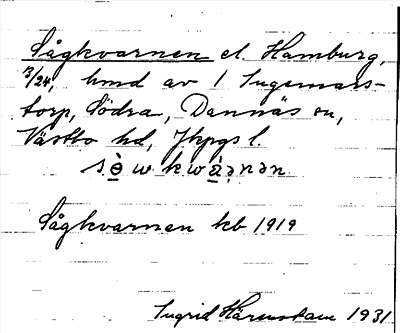 Sågkvarnen el. Hamburg,
3/24, hmd av 1 Ingemars-
torp, Södra, Dannäs sn,
Västbo hd, Jkpgs l.
sè̱wkwà̱ṛnən
Sågkvarnen kb 1919
Ingrid Härenstam 1931